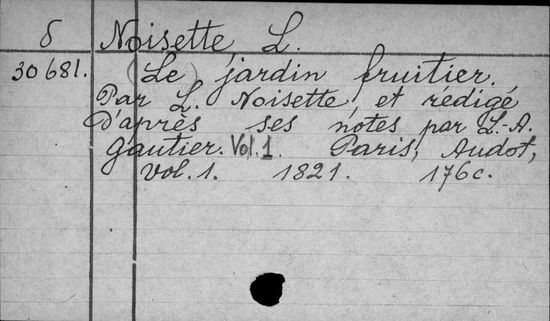 б Noisette L.
30681. (Le) jardin fruitier.
Par L. Noisette et rédigé
d'après ses notes par L.-A.
Gautier. Vol. 1. Paris, Audot,
vol. 1. 1821. 176 c.